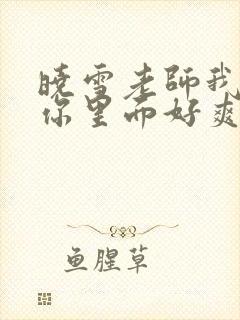 晓雪老師我
你里面好爽
鱼腥草